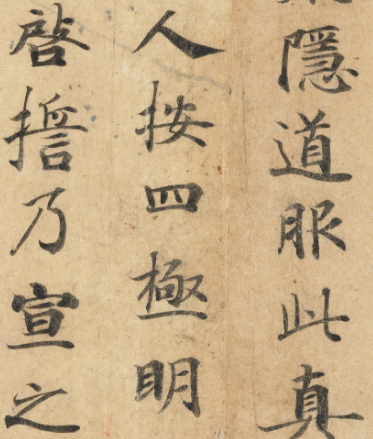 隱道服此真
人按四極明
啓㨾乃宣之